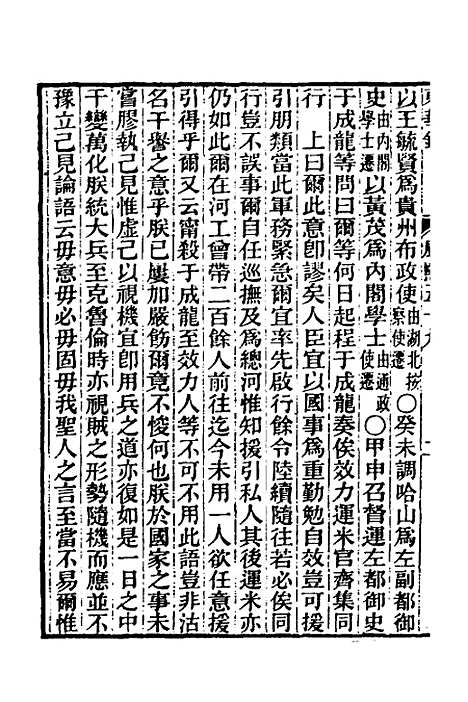 以王毓賢爲貴州布政使由湖北按察使遷〇癸未調哈山爲左副都御
史由內閣學士遷以黃茂爲內閣學士由通政使遷〇甲申召督運左都御史
于成龍等問曰爾等何日起程于成龍奏俟效力運米官齊集同
行　上曰爾此意卽謬矣人臣宜以國事爲重勤勉自效豈可援
引朋類當此軍務緊急爾宜率先啟行餘令陸續隨往若必俟同
行豈不誤事爾自任巡撫及爲總河惟知援引私人其後運米亦
仍如此爾在河工曾帶二百餘人前往迄今未用一人欲任意援
引得乎爾又云甯殺于成龍至效力人等不可不用此語豈非沽
名干譽之意乎朕已屢加嚴飭爾竟不悛何也朕於國家之事未
嘗膠執己見惟虛己以視機宜卽用兵之道亦復如是一日之中
千變萬化朕統大兵至克魯倫時亦視賊之形勢隨機而應並不
豫立己見論語云毋意毋必毋固毋我聖人之言至當不易爾惟